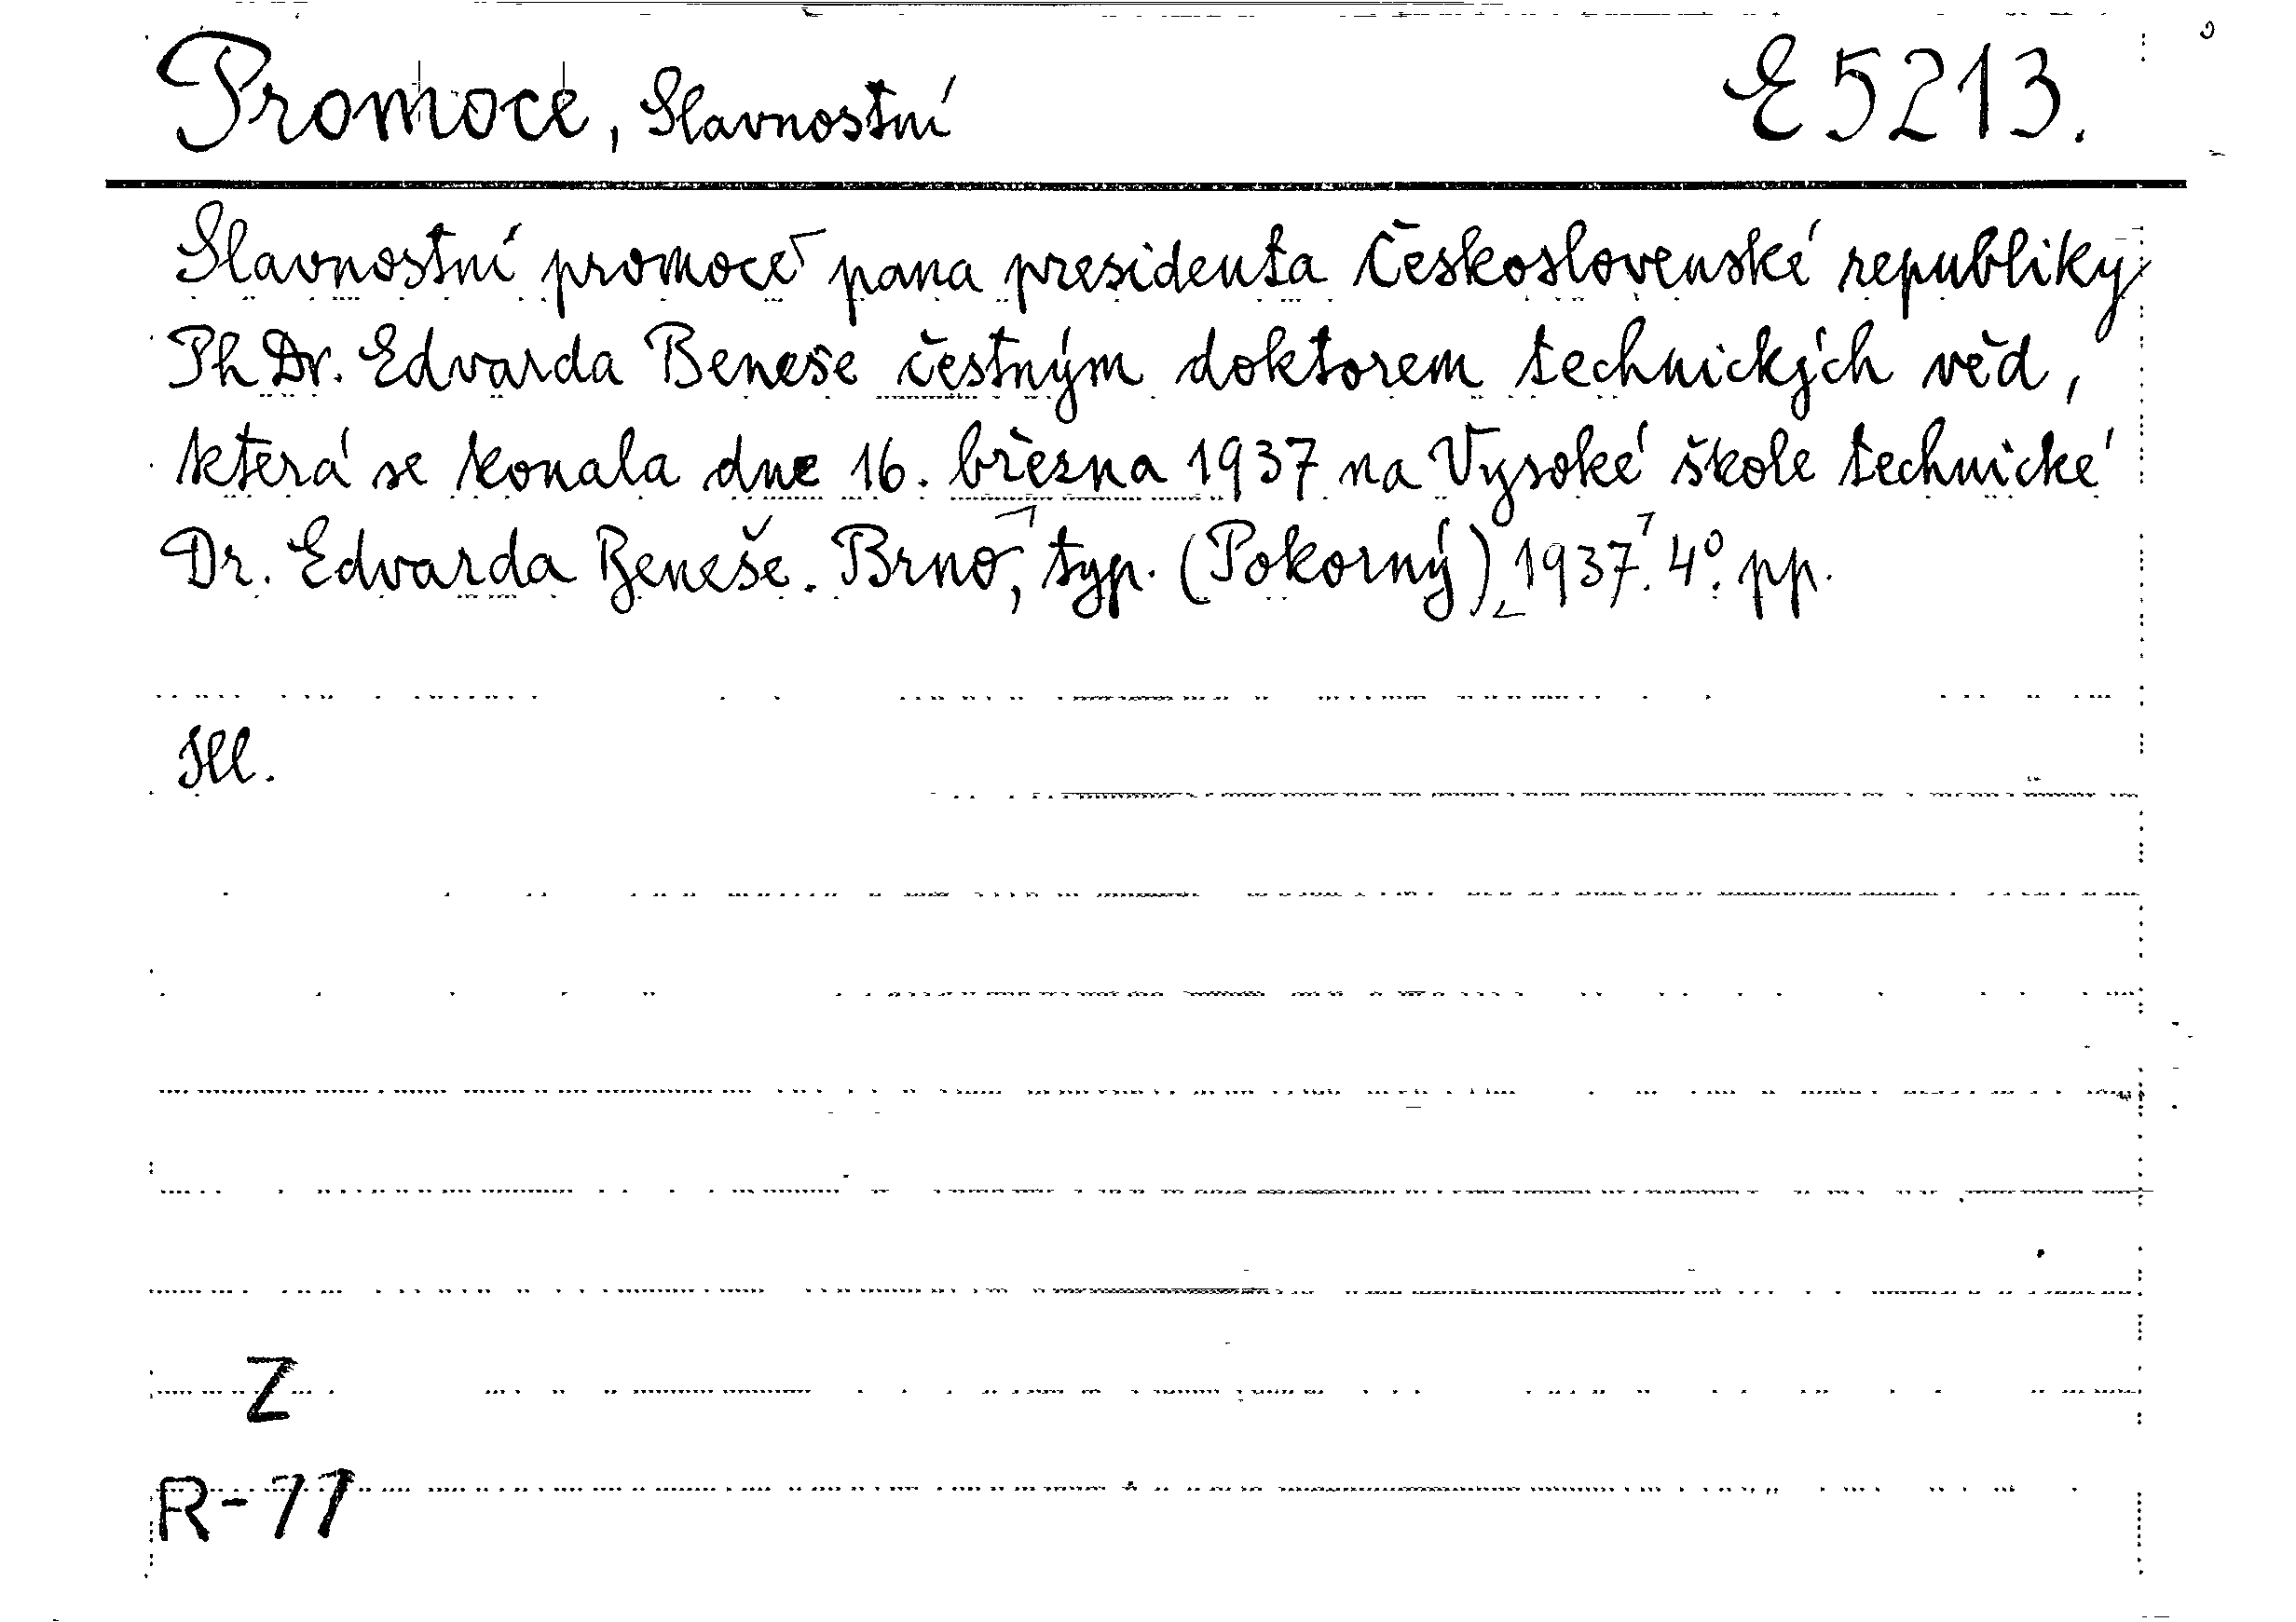 Promoce, Slavnostní E 5213.
Slavnostní promoce pana presidenta Československé republiky
PhDr. Edvarda Beneše čestným doktorem technických věd,
která se konala dne 16. března 1937 na Vysoké škole technické
Dr. Edvarda Beneše. Brno, typ. (Pokorný), 1937. 4° pp.
Ill.
Z
R-11